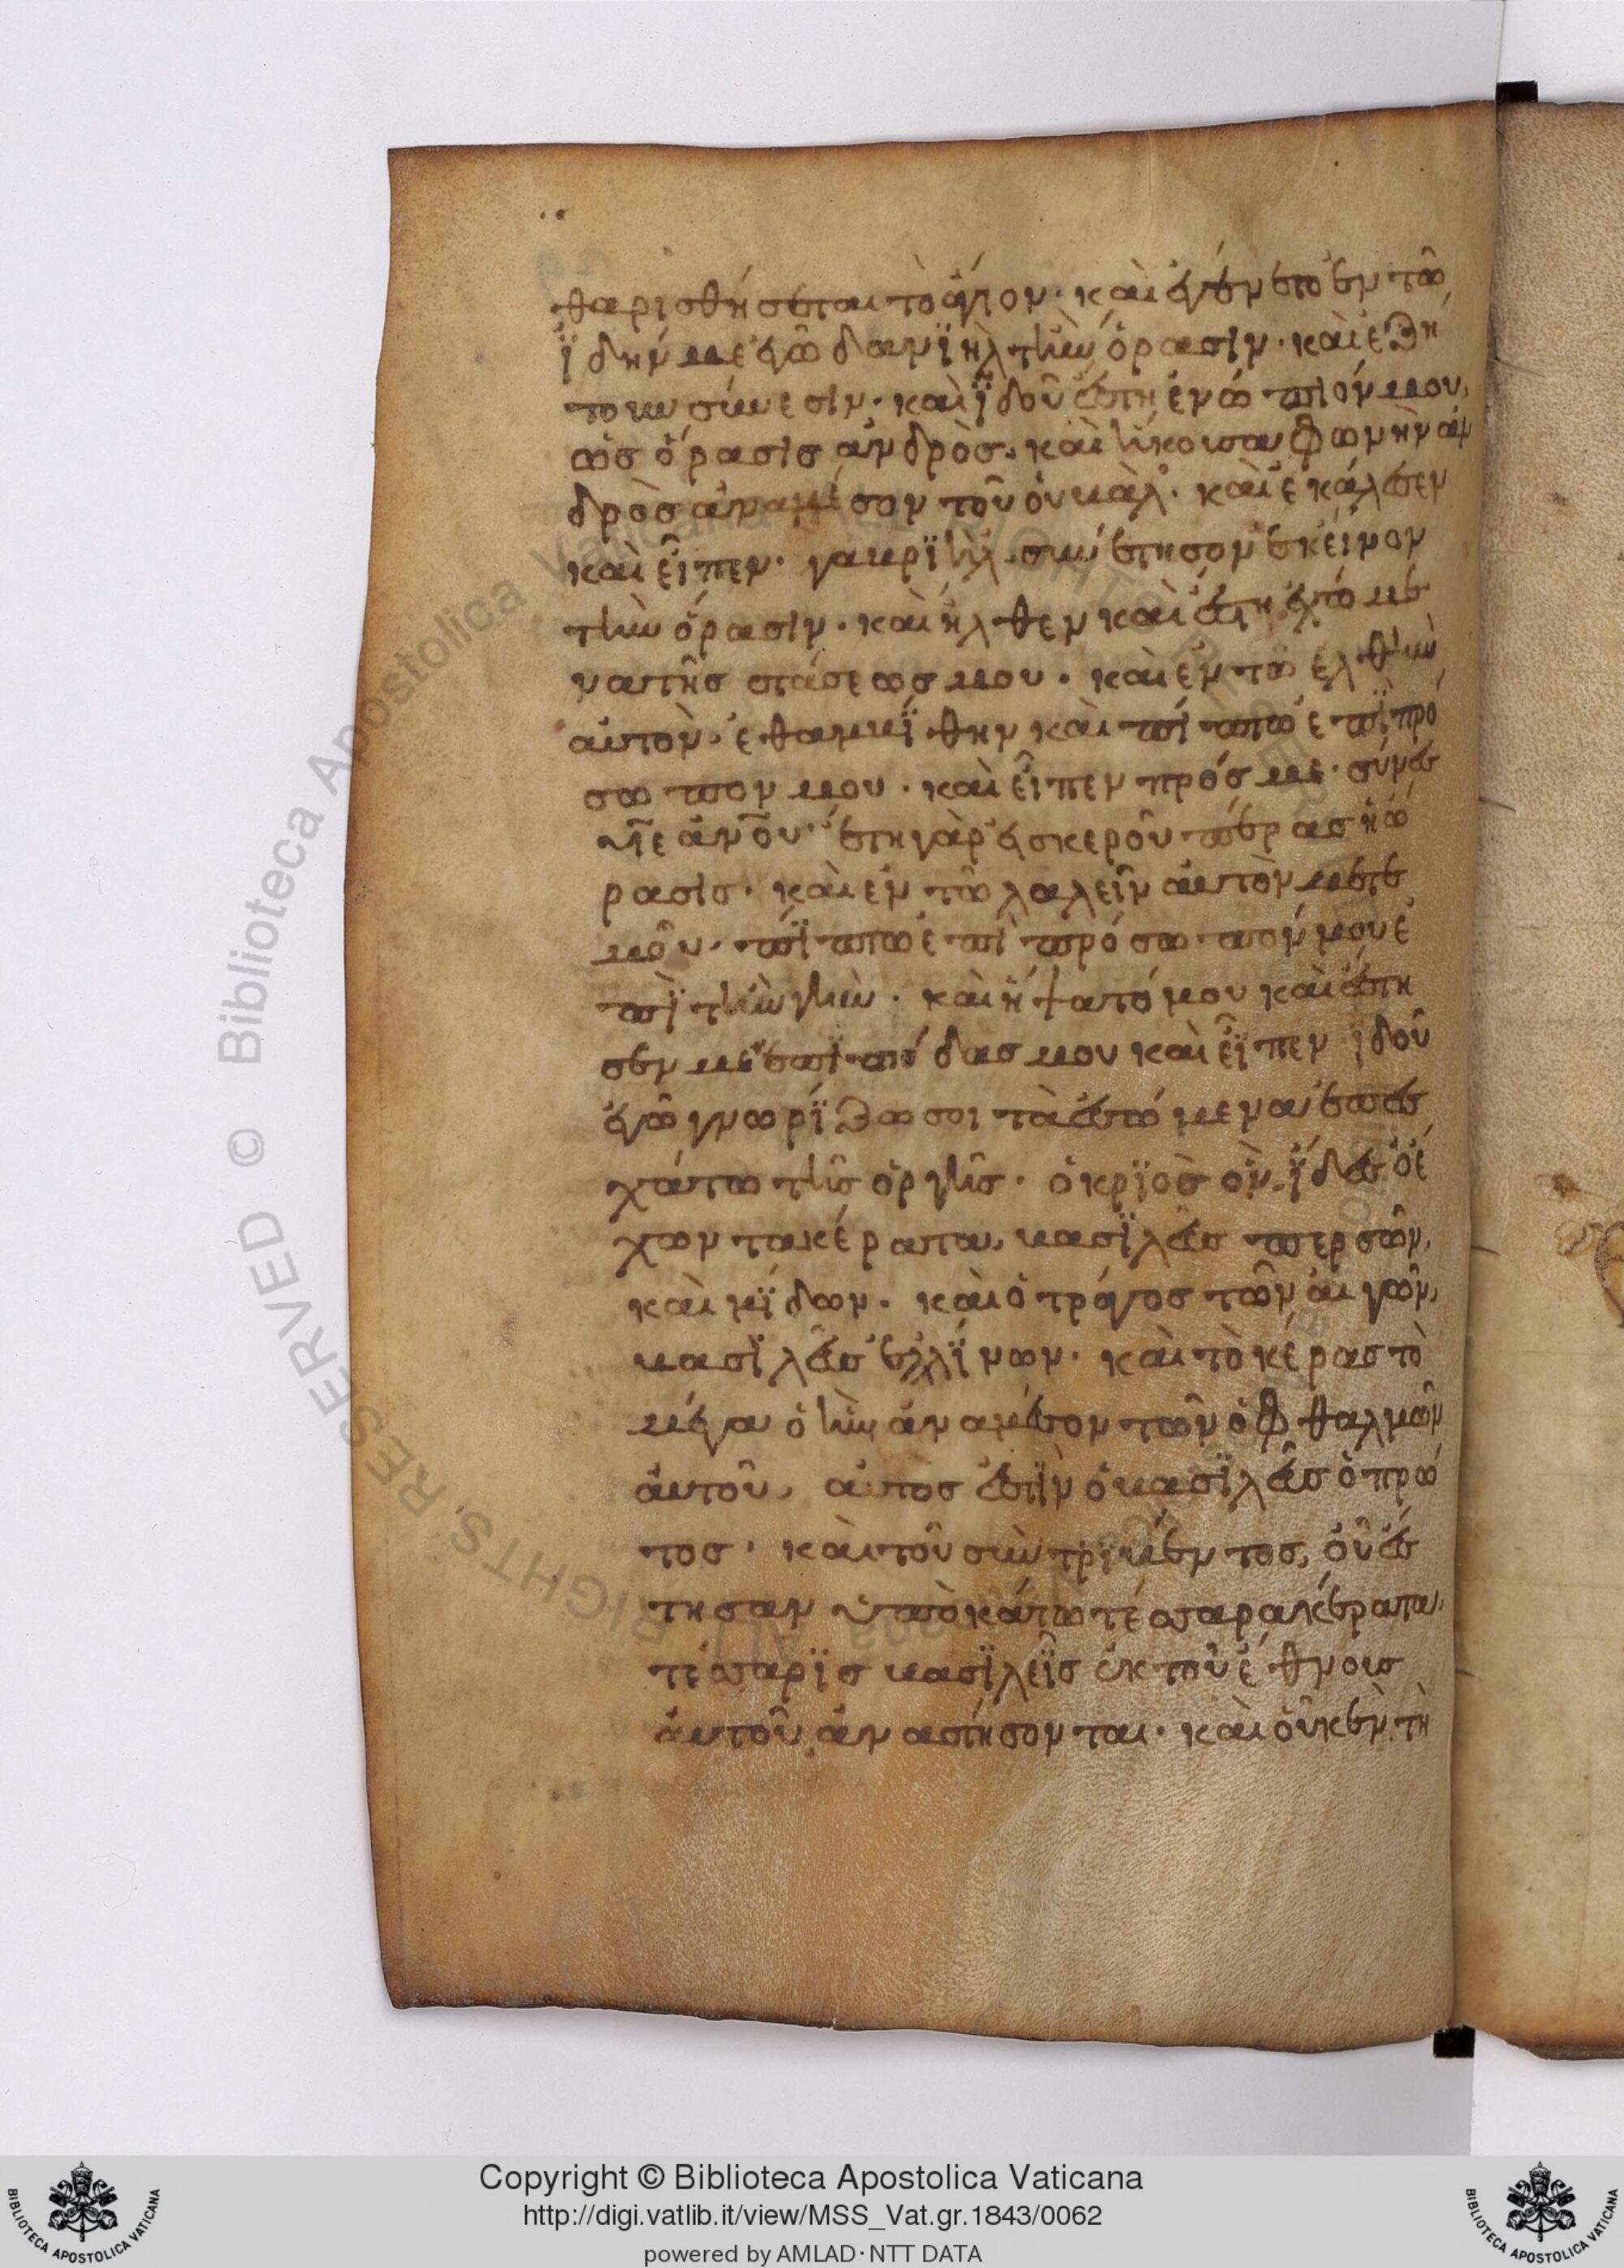 θαρισθήσεται τὸ ἅγιον· καὶ ἐγένετο ἐν τῶ
ϊδήν με ἐγὼ δανϊὴλ τὴν ὅρασιν· καὶ ἐζή
τουν σύνεσιν· καὶ ϊδοῦ ἔστη ἐνώπιόν μου,
ὡς ὅρασις ἀνδρὸς· καὶ ἤκουσα φωνὴν ἀν
δρὸς ἀναμέσον τοῦ οὐβὰλ· καὶ ἐκάλεσεν
καὶ εἶπεν· γαβρϊὴλ συνέτησον ἐκεῖνον
τὴν ὅρασιν· καὶ ἦλθεν καὶ ἔστη ἐχόμε
να τῆς στάσεως μου· καὶ ἐν τῶ ἐλθῆν
αὐτὸν· ἐθαμβΐθην καὶ πίπτω ἐπῒ πρό
σωπον μου· καὶ εἶπεν πρός με· σύνες
υῖε ἀνοῦ· ἔτη γὰρ ἐς κεροῦ πέρας ἡ ὅ
ρασις· καὶ ἐν τῶ λαλεῖν αὐτὸν μετε
μοῦ· πΐπτω ἐπὶ πρόσωπόν μου ἐ
πῒ τὴν γὴν· καὶ ἥψατό μου καὶ ἔστη
σεν με ἐπὶ πόδας μου καὶ εἶπεν ἰδοῦ
ἐγὼ γνωρΐζω σοι τὰ ἐσόμενα ἐπ ἐσ
χάτω τῆς ὀργῆς· ὁ κρϊὸς ὃν ΐδες ὁ ἔ
χων τα κέρατα, βασϊλεὺς περσῶν,
καὶ μΐδων· καὶ ὁ τράγος τῶν αἰγῶν,
βασϊλεὺς ἑλλΐνων· καὶ τὸ κέρας τὸ
μέγα ὃ ἦν ἀναμέσον τῶν ὀφθαλμῶν
αὐτοῦ, αὐτὸς ἐστῒν ὁ βασϊλεὺς ὁ πρῶ
τος· καὶ τοῦ συντριβέντος, οὗ ἔσ
τησαν ὑποκάτω τέσσαρα κέρατα,
τέσσαρϊς βασϊλεῖς ἐκ τοῦ ἔθνους
αὐτοῦ ἀναστήσονται· καὶ οὐκ ἐν τῆ
Copyright © Biblioteca Apostolica Vaticana
http://digi.vatlib.it/view/MSS_Vat.gr.1843/0062
powered by AMLAD·NTT DATA